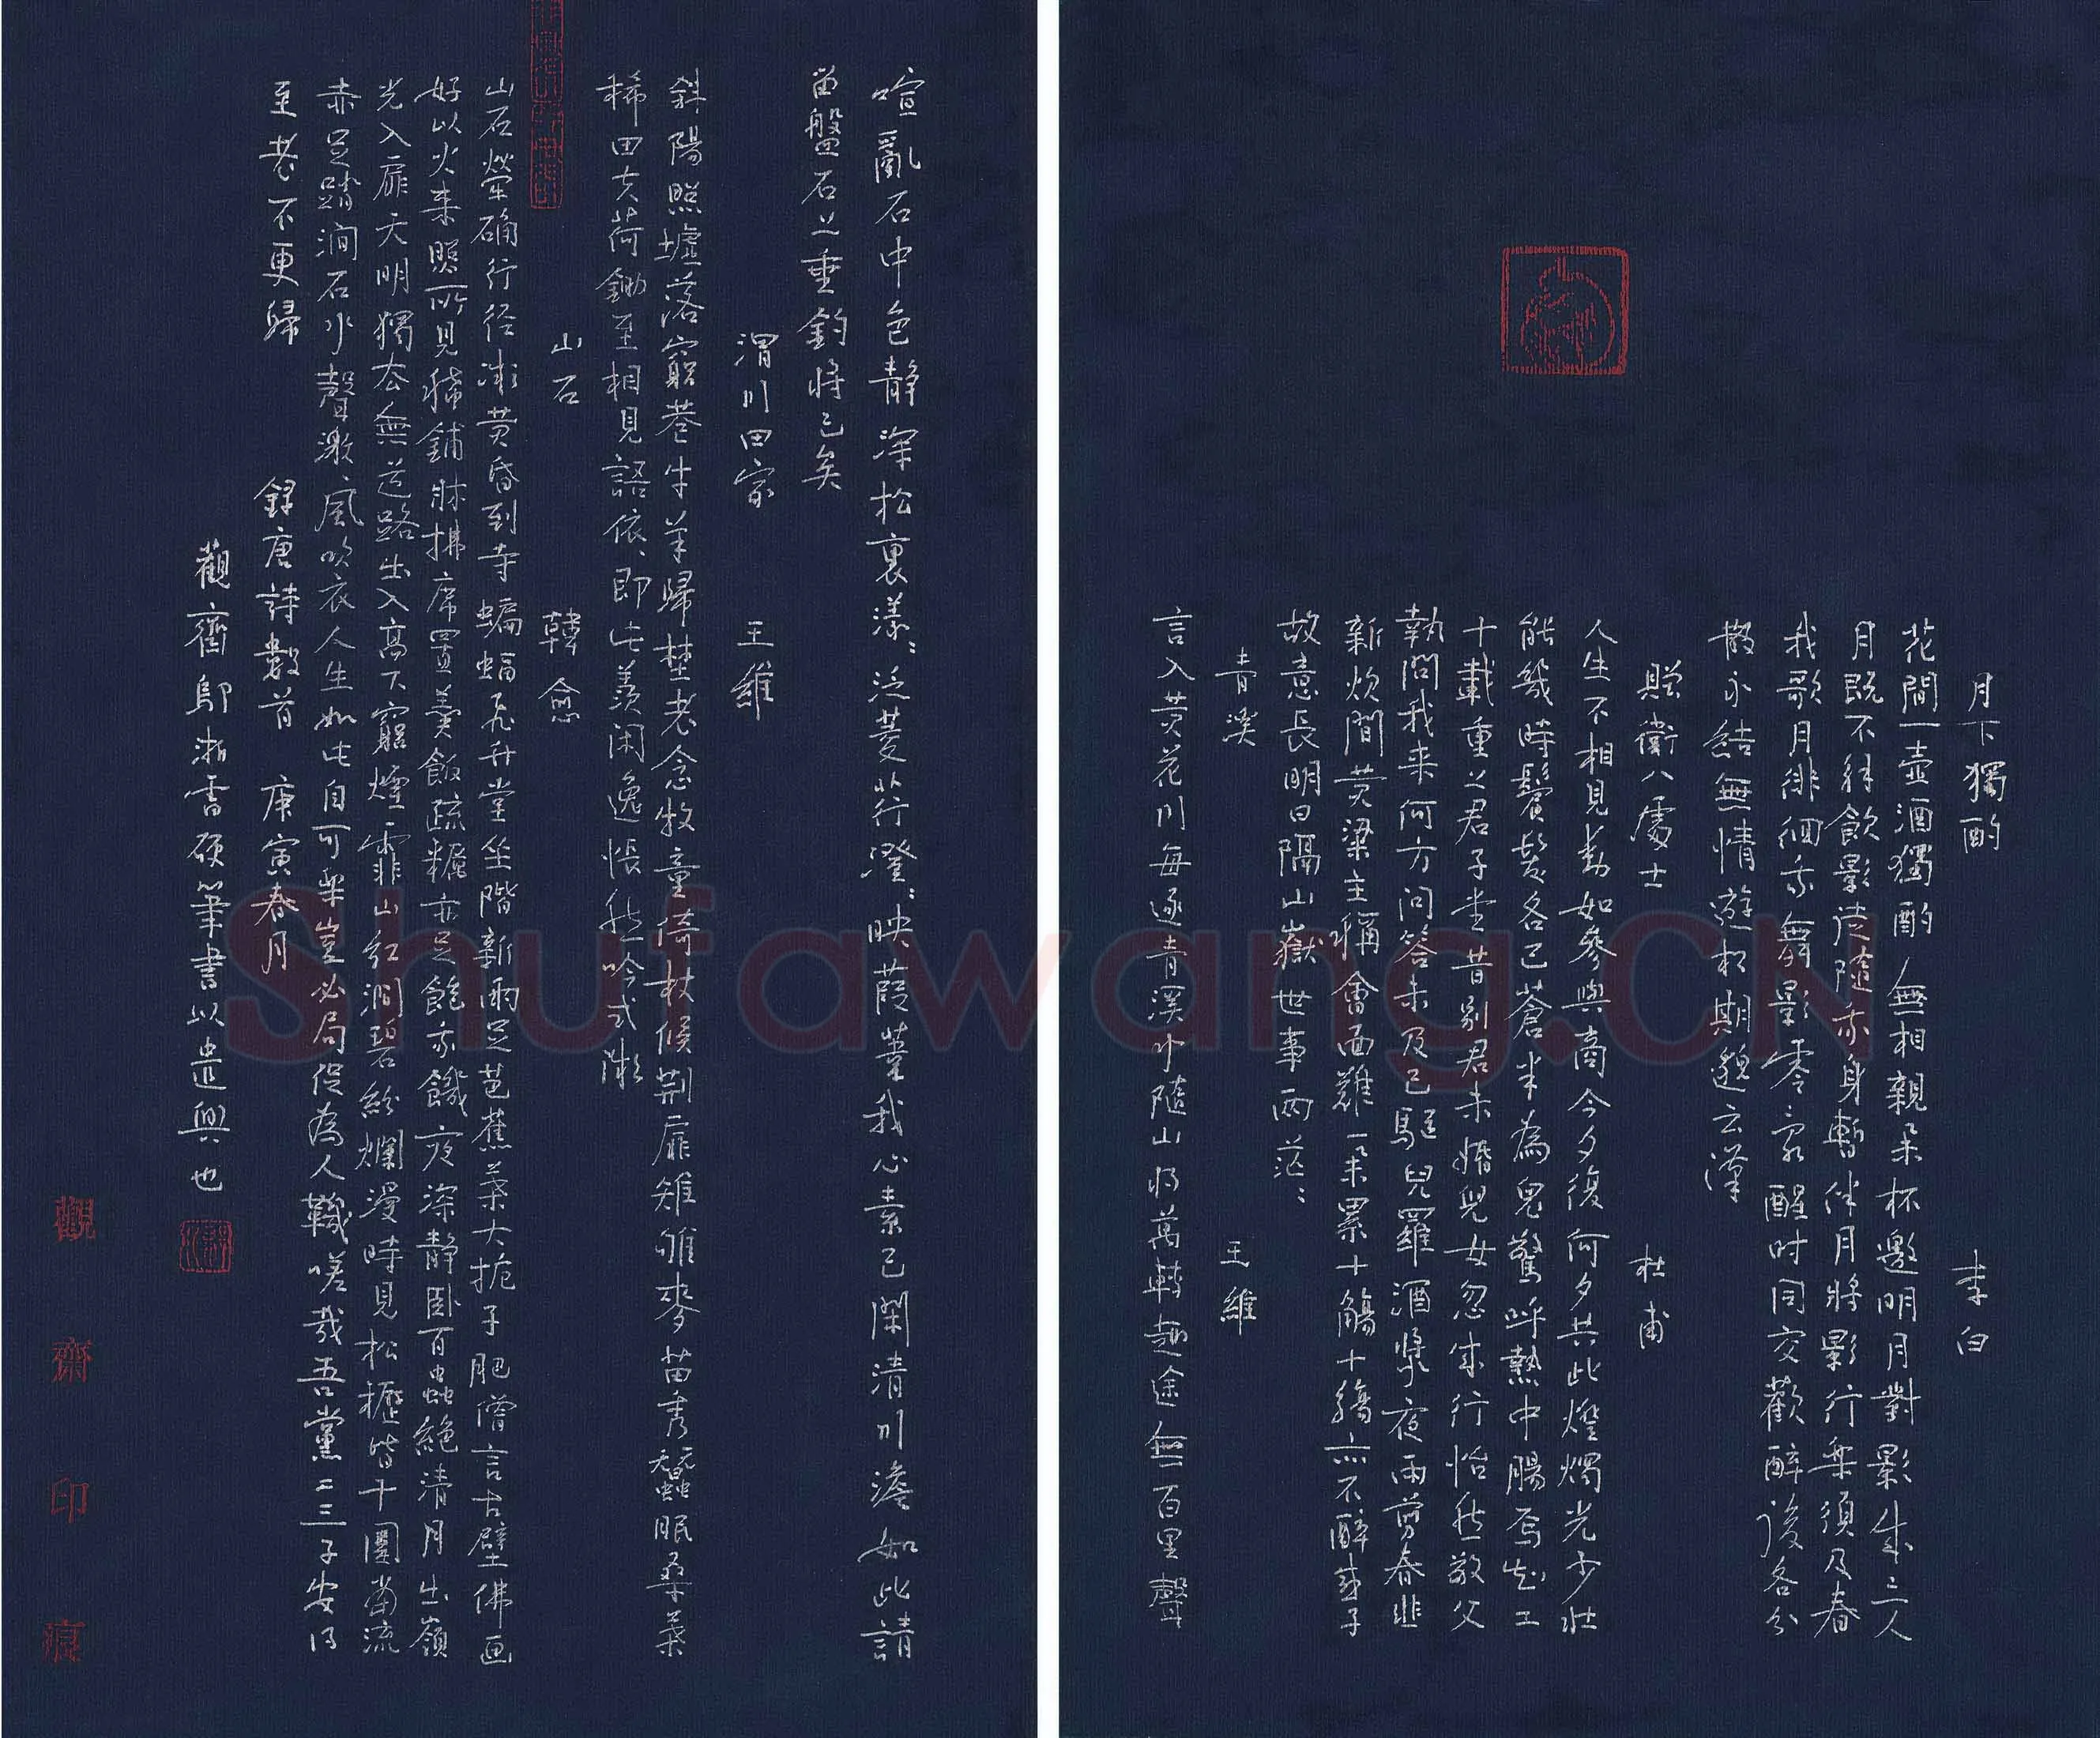 月下獨酌　李白
花間一壺酒獨酌無相親舉杯邀明月對影成三人
月既不解飲影徒隨我身暫伴月將影行樂須及春
我歌月徘徊我舞影零亂醒時同交歡醉後各分
散永結無情遊相期邈云漢
贈衛八處士　杜甫
人生不相見動如參與商今夕復何夕共此燈燭光少壯
能幾時鬢髮各已蒼半為鬼驚呼熱中腸焉知二
十載重上君子堂昔別君未婚兒女忽成行怡然敬父
執問我來何方問答未及已驅兒羅酒漿夜雨剪春韭
新炊間黃粱主稱會面難一舉累十觴十觴亦不醉感子
故意長明日隔山嶽世事兩茫:
青溪　王維
言入黃花川每逐青溪水隨山將萬轉趣途無百里聲
喧亂石中色靜深松裏漾:泛菱荇澄:映葭葦我心素已閑清川澹如此請
留盤石上垂釣將已矣
渭川田家　王維
斜陽照墟落窮巷牛羊歸野老念牧童倚杖候荊扉雉雊麥苗秀蠶眠桑葉
稀田夫荷鋤至相見語依、即此羨閑逸悵然吟式微
山石　韓愈
山石犖确行徑微黃昏到寺蝙蝠飛升堂坐階新雨足芭蕉葉大梔子肥僧言古壁佛画
好以火來照所見稀鋪牀拂席置羹飯疏糲亦足飽我饑夜深靜臥百蟲絕清月出嶺
光入扉天明獨去無道路出入高下窮煙霏山紅澗碧紛爛漫時見松櫪皆十圍當流
赤足踏澗石水聲激、風吹衣人生如此自可樂豈必局促為人鞿嗟哉吾黨二三子安得
至老不更歸
錄唐詩數首　庚寅春月
觀齋鄔湘雲硬筆書以遣興也
觀齋印痕
Shufawang.CN